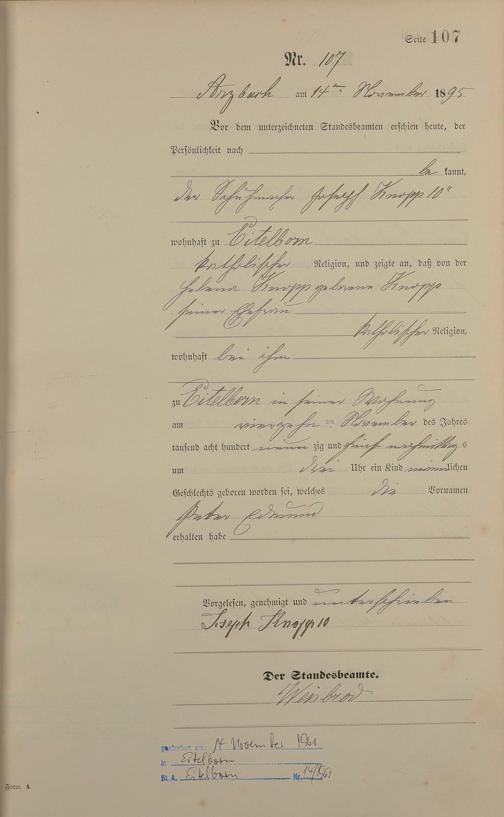 Seite 107
Nr. 107
Arzbach am 14ten November 1895
Vor dem unterzeichneten Standesbeamten erschien heute, der
Persönlichkeit nach
be kannt,
der Schuhmacher Joseph Knopp 10r
wohnhaft zu Eitelborn
katholischer Religion, und zeigte an, daß von der
Helena Knopp geborene Knopp
seiner Ehefrau
katholischer Religion,
wohnhaft bei ihm
zu Eitelborn in seiner Wohnung
am vierzehn ten November des Jahres
tausend acht hundert neun zig und fünf nachmittag s
um drei Uhr ein Kind männlichen
Geschlechts geboren worden sei, welches die Vornamen
Peter Edmund
erhalten habe
Vorgelesen, genehmigt und unterschrieben
Joseph Knopp 10
Der Standesbeamte.
Weisbrod
gestorben am: 14 November 1961
in Eitelborn
St. A. Eitelborn Nr. 14/1961
Form. A